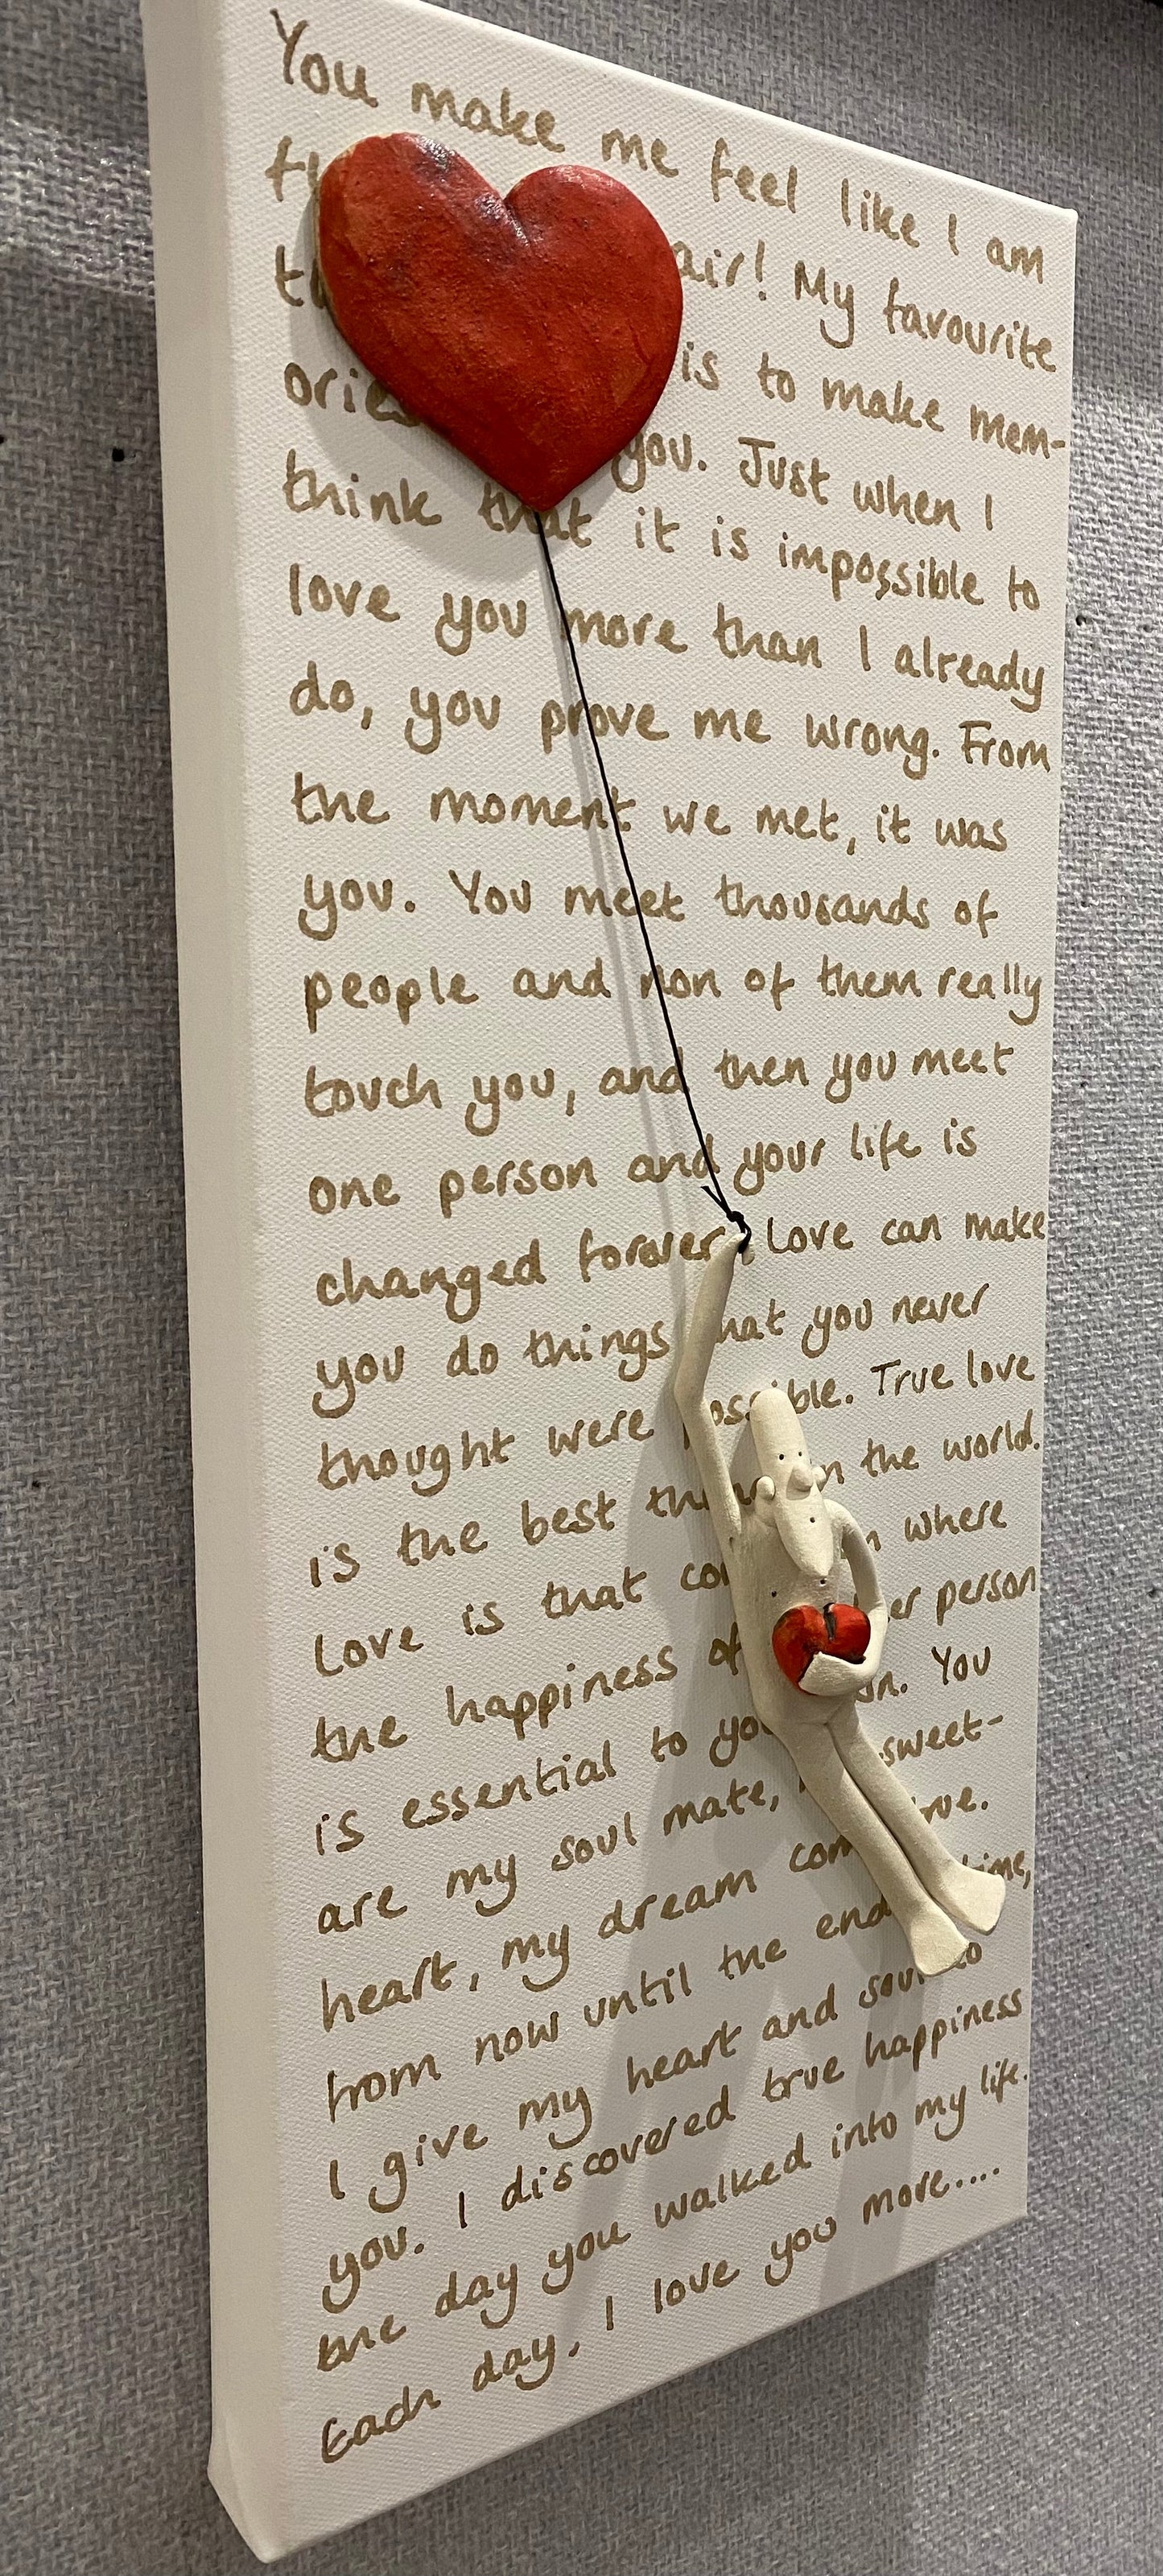 You make me feel like I am
air! My favourite
is to make mem-
ories you. Just when I
think that it is impossible to
love you more than I already
do, you prove me wrong. From
the moment we met, it was
you. You meet thousands of
people and non of them really
touch you, and then you meet
one person and your life is
changed forever. Love can make
you do things that you never
thought were possible. True love
is the best thing in the world.
Love is that where
the happiness of person
is essential to You
are my soul mate, sweet-
heart, my dream come true.
from now until the end time,
I give my heart and soul to
you. I discovered true happiness
the day you walked into my life.
Each day, I love you more....